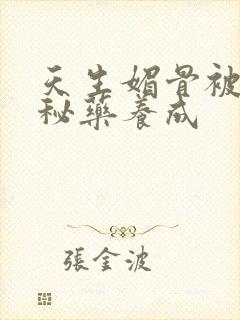 天生媚骨被
秘藥養成
張金波